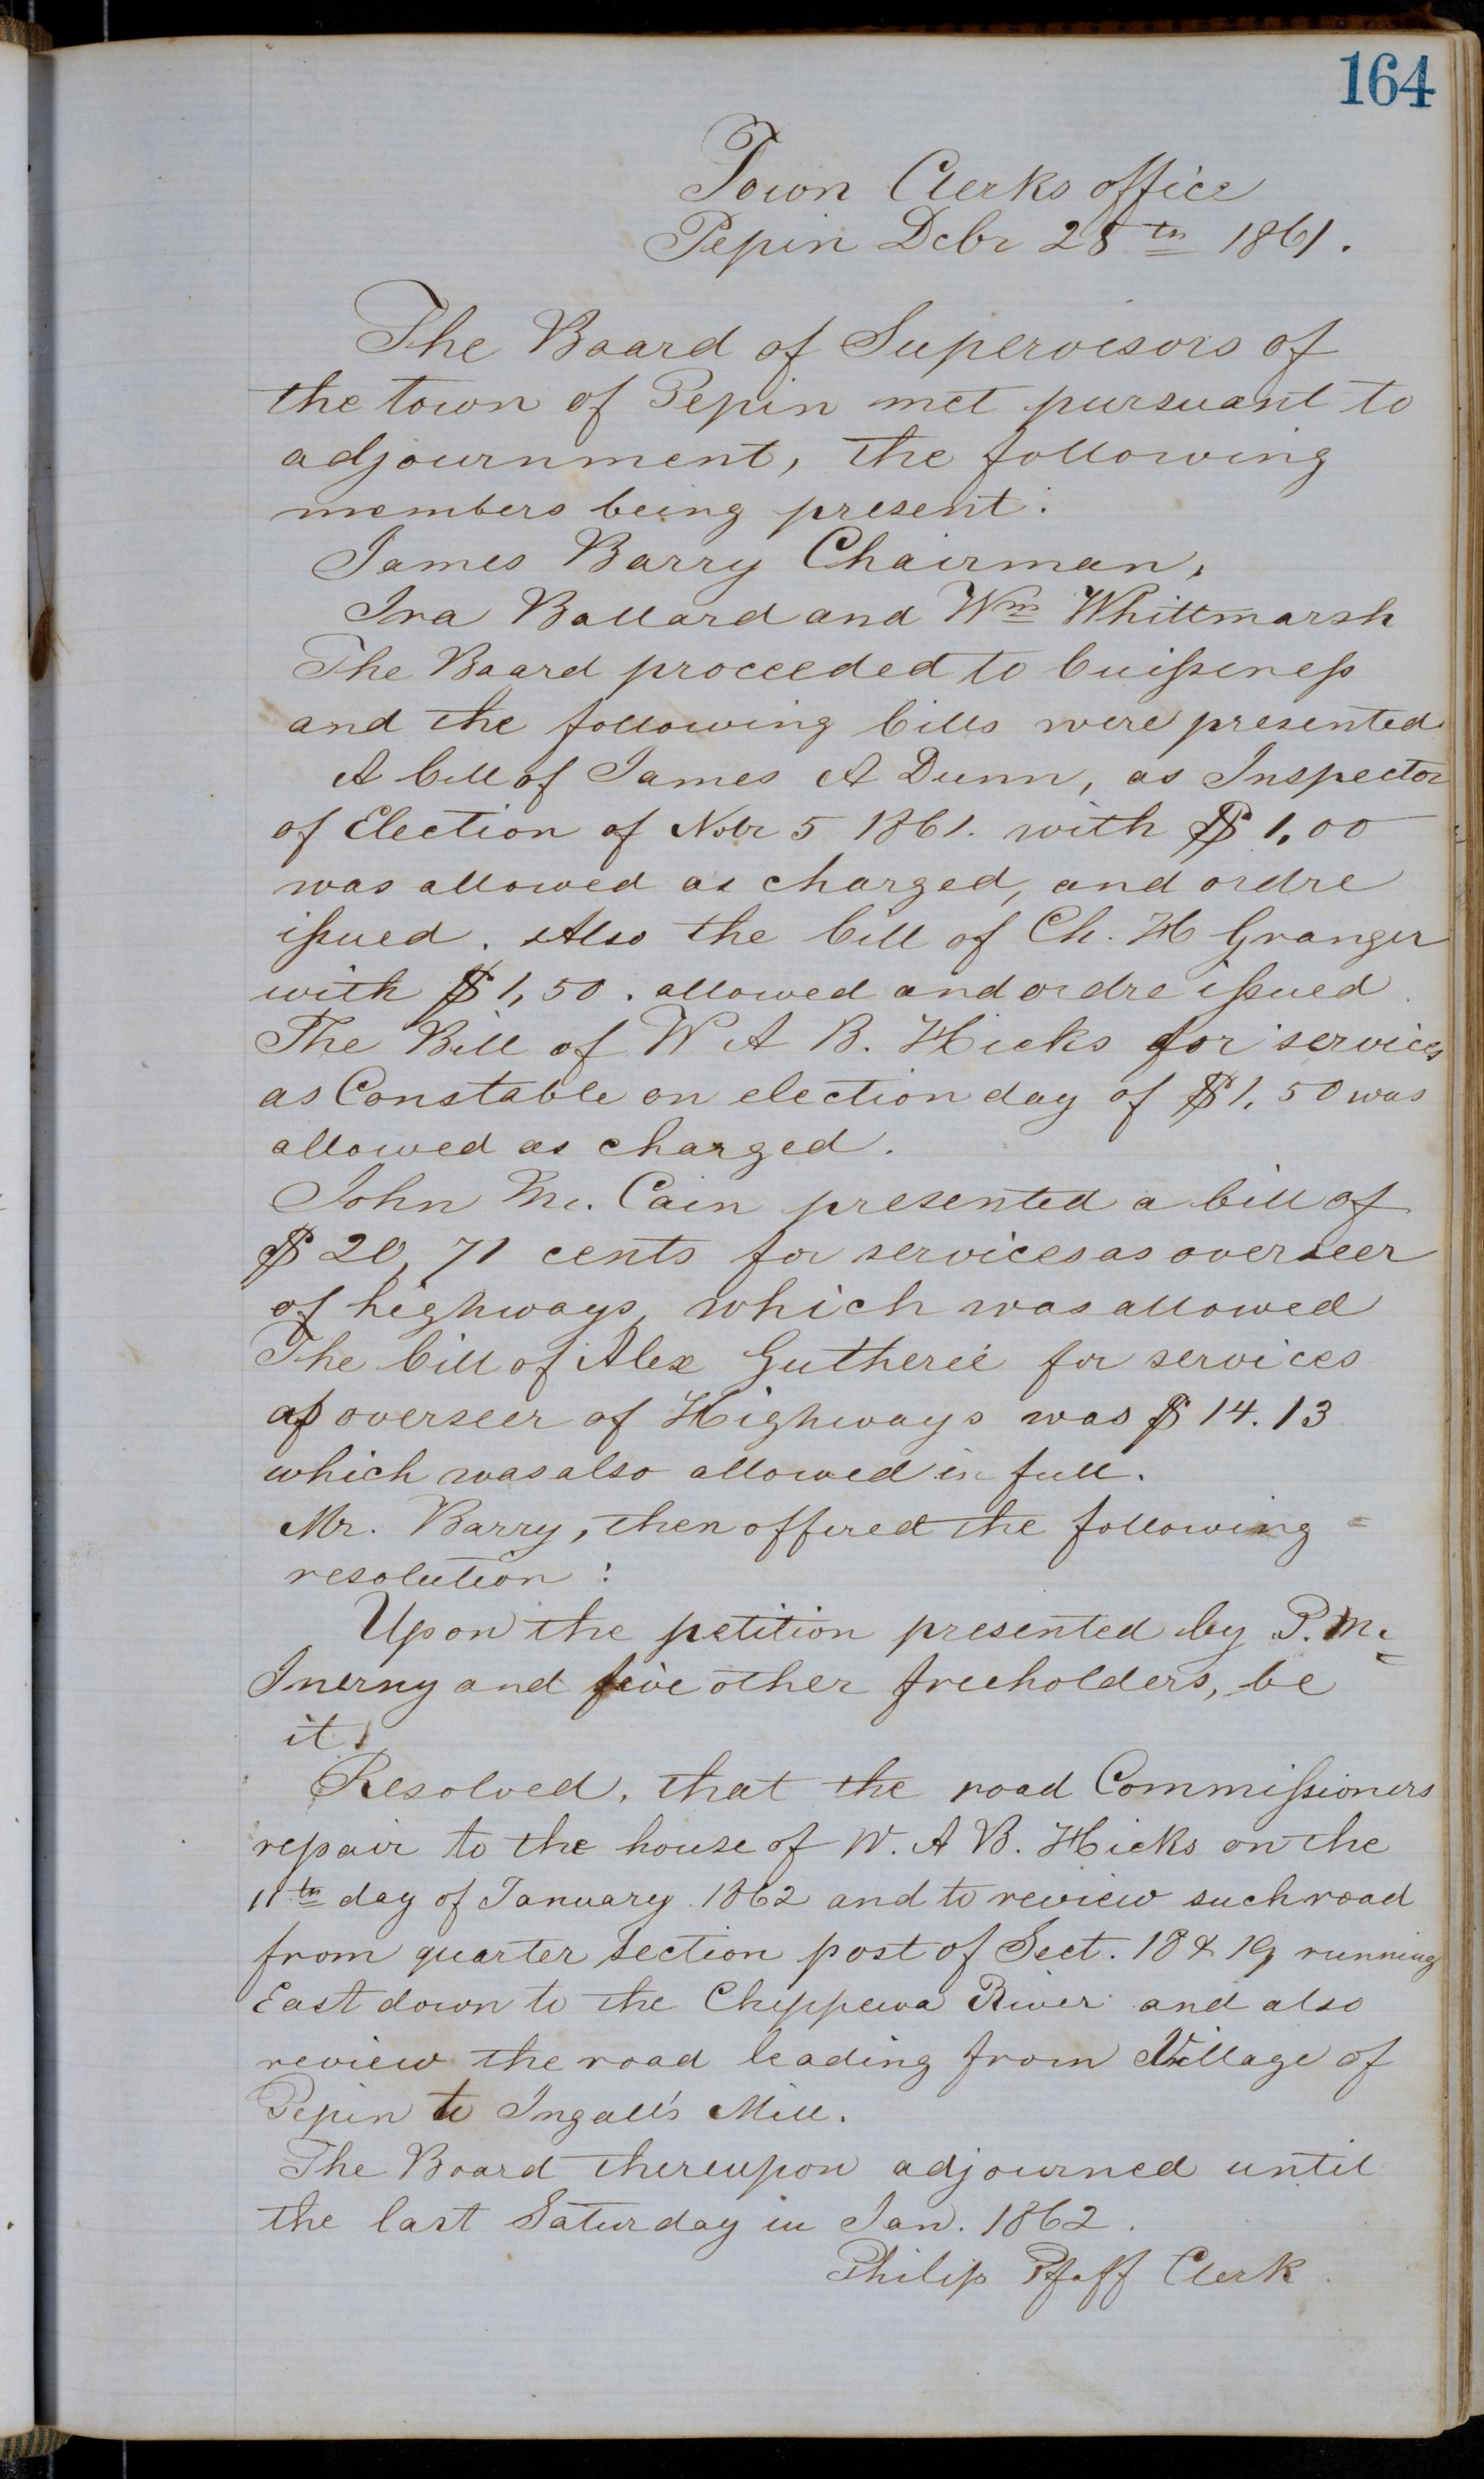 164
Town Clerks office
Pepin Decbr 28th 1861.
The Board of Supervisors of
the town of Pepin met pursuant to
adjournment, the following
members being present:
James Barry Chairman,
Ira Ballard and Wm Whittmarsh
The Board proceeded to buissiness
and the following bills were presented.
A bill of James A Dunn, as Inspector
of Election of Nobr 5 1861. with $ 1,00
was allowed as charged, and ordre
issued. Also the bill of Ch. H Granger
with $ 1,50. allowed and ordre issued.
The Bill of W A B. Hicks for services
as Constable on election day of $1,50 was
allowed as charged.
John Mc. Cain presented a bill of
$ 20, 71 cents for services as overseer
of highways, which was allowed
The bill of Alex Gutherie for services
as overseer of Highways was $ 14.13
which was also allowed in full.
Mr. Barry, then offered the following =
resolution:
Upon the petition presented by P. Mc=
Inerny and five other freeholders, be
it
Resolved, that the road Commissioners
repair to the house of W. A B. Hicks on the
11th day of January 1862 and to review such road
from quarter section post of Sect. 18 & 19 running
East down to the Chippewa River and also
review the road leading from Village of
Pepin to Ingall's Mill.
The Board thereupon adjourned until
the last Saturday in Jan. 1862.
Philip Pfaff Clerk.